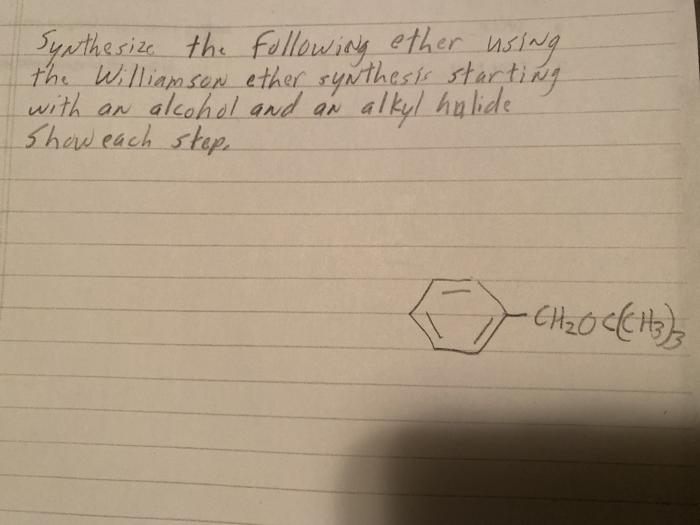 Synthesize the following ether using
the Williamson ether synthesis starting
with an alcohol and an alkyl halide
Show each step.
CH2OC(CH3)3